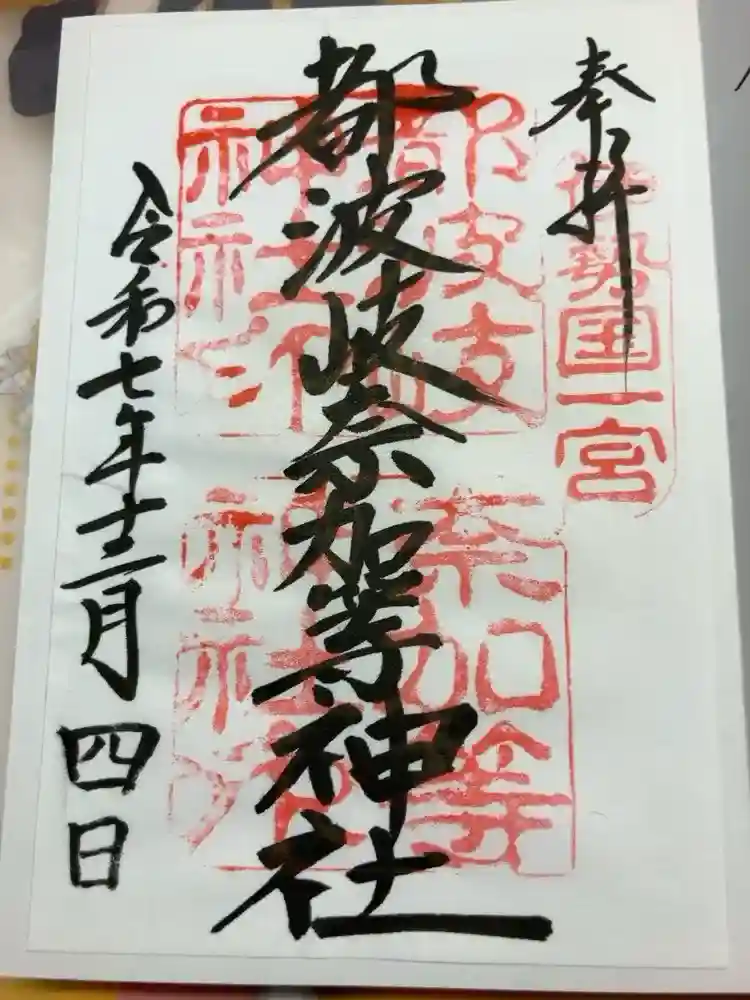 奉拝
伊勢国一宮
都波岐奈加等神社
都波岐
神社
奈加等
神社
令和七年十二月四日